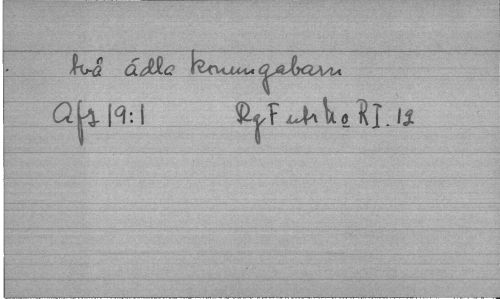 två ädla konungabarn
Afz 19:1 Rg F utr h o R I. 12